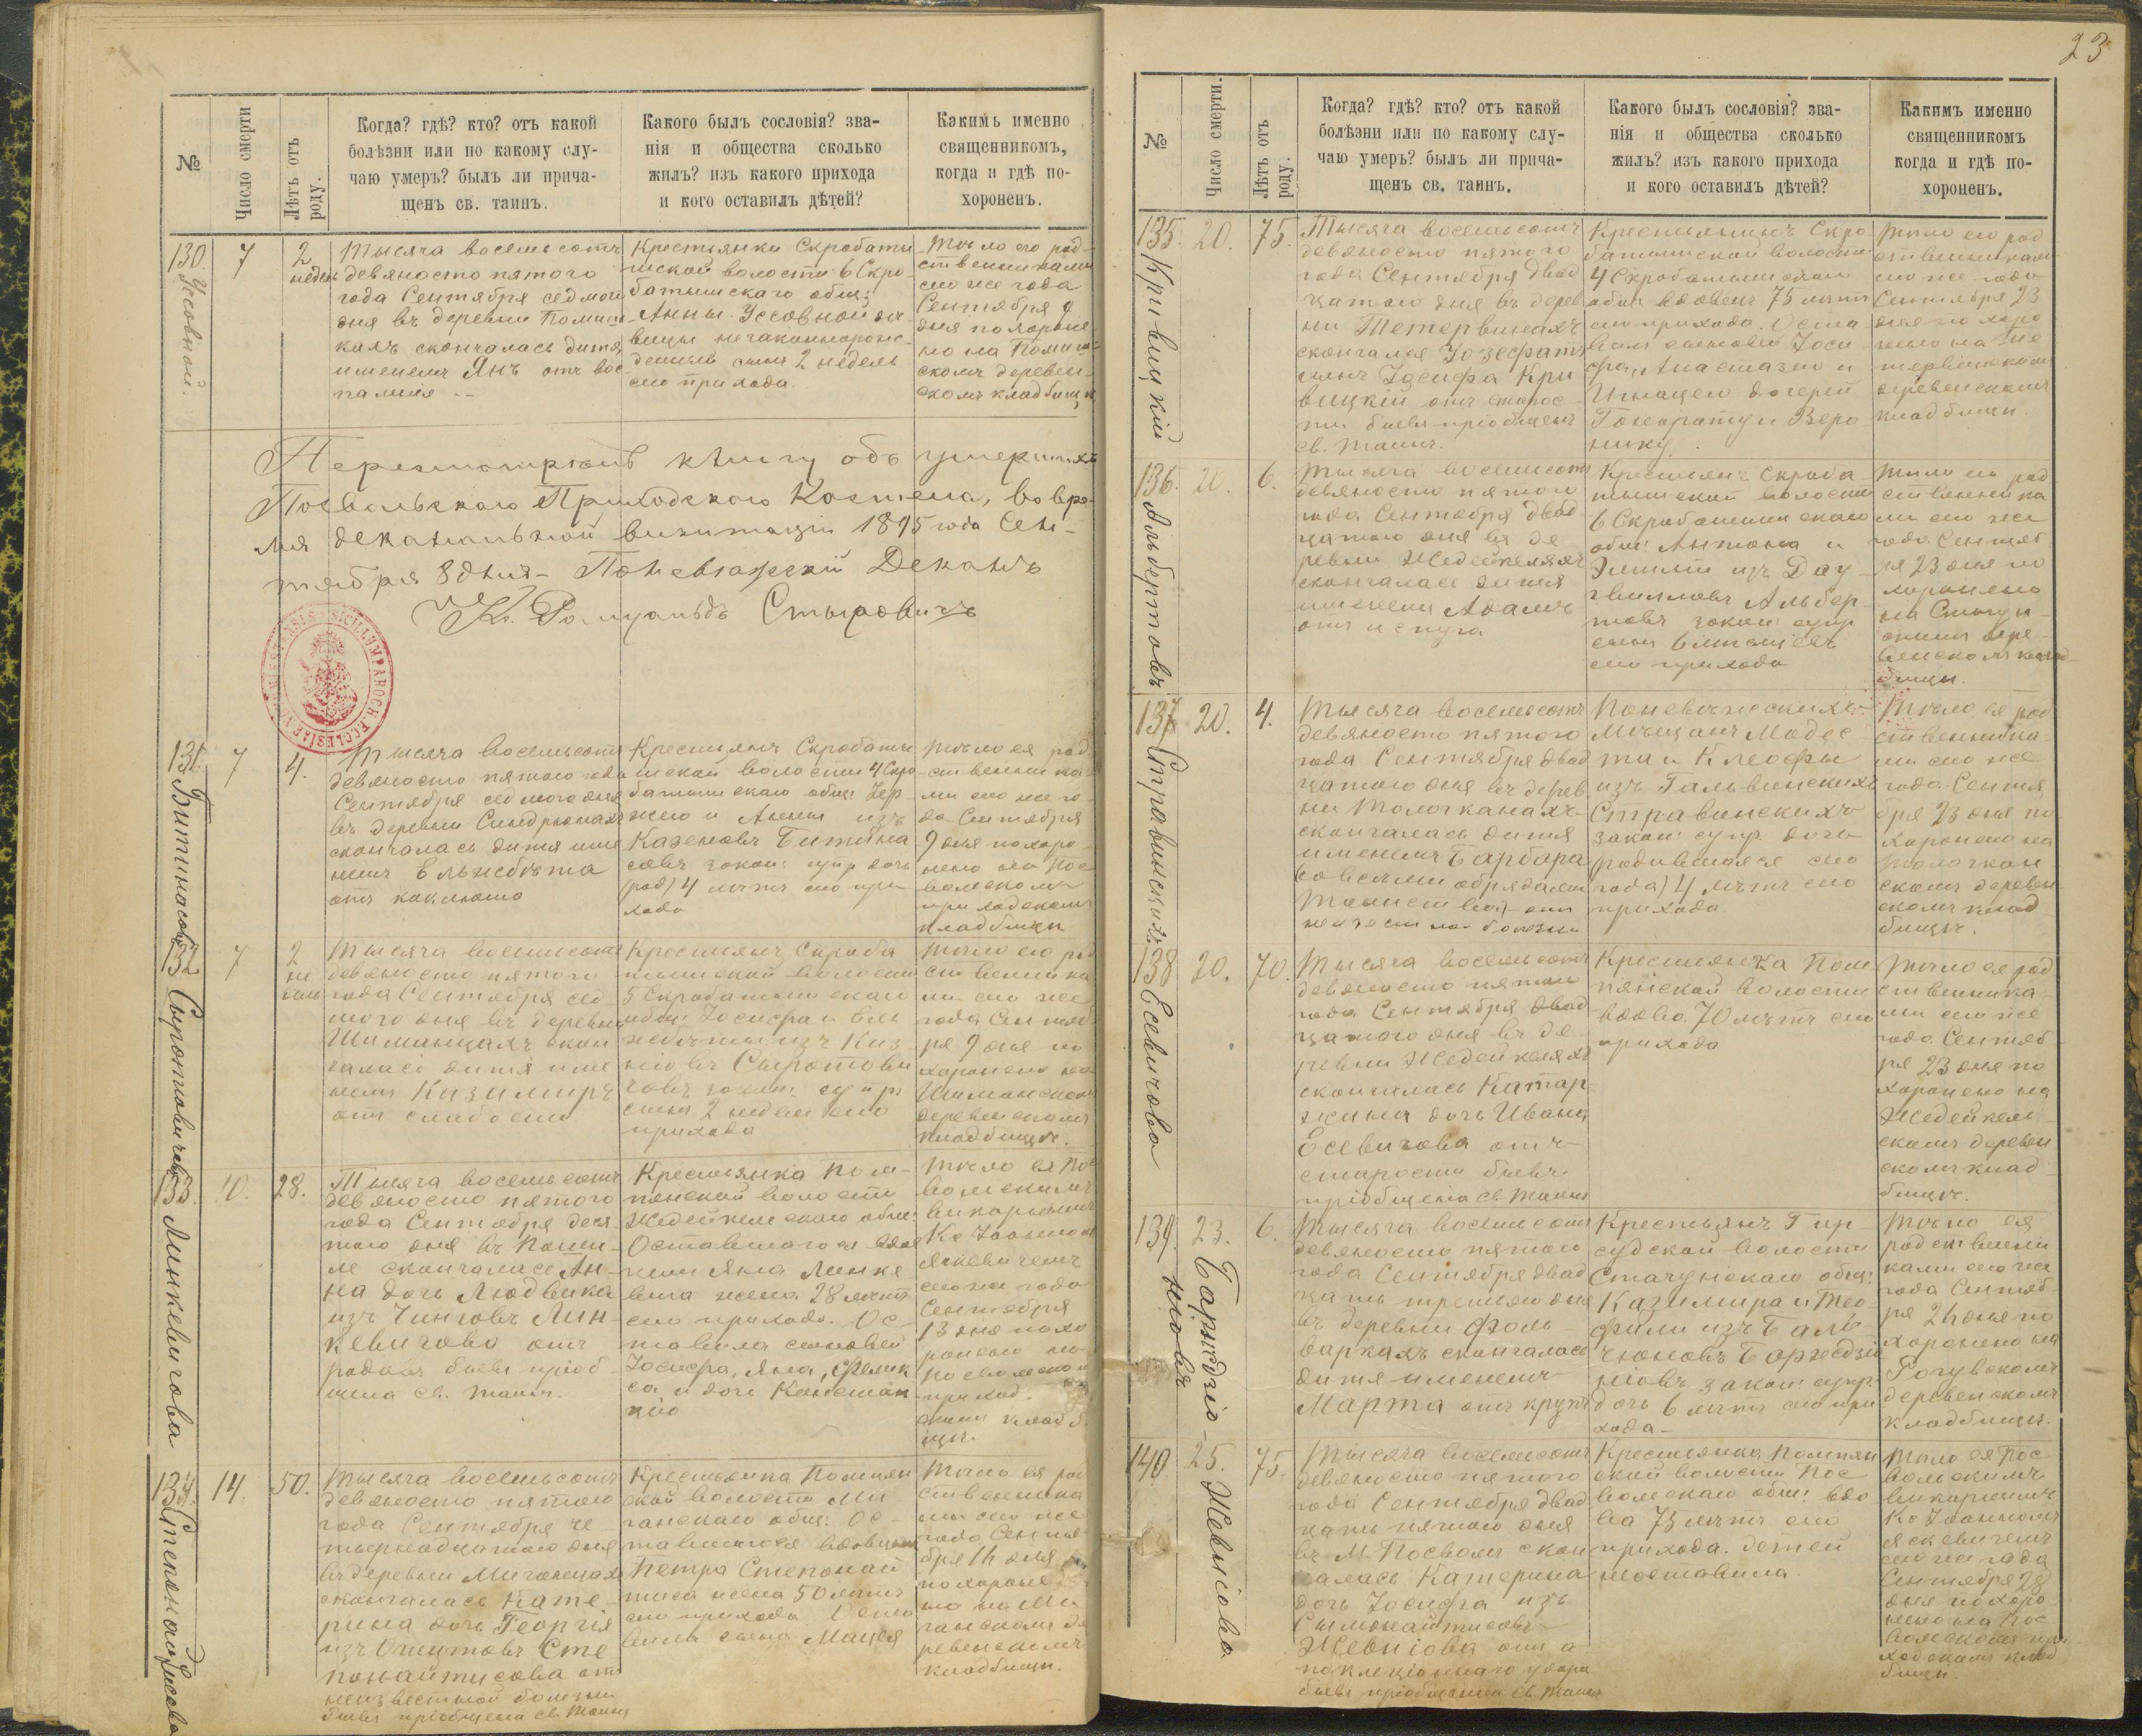 №
Число смерти
Лѣтъ отъ
роду.
Когда? гдѣ? кто? отъ какой
болѣзни или по какому слу-
чаю умеръ? былъ ли прича-
щенъ св. таинъ.
Какого былъ сословія? зва-
нія и общества сколько
жилъ? изъ какого прихода
и кого оставилъ дѣтей?
Какимъ именно
священникомъ,
когда и гдѣ по-
хороненъ.
130.
Уссовной.
7
2
недѣл
Тысяча восемьсотъ
девяносто пятого
года Сентября седмого
дня въ деревни
скончалась дитя,
именемъ Янъ отъ вос
паления
Крестьянки Скробаты
шской волости 6 Скро
батышскаго общ:
Анны Уссовной дѣ
вицы незаконнорож-
денный сынъ 2 недель
сего прихода.
Тѣло его род
ственниками
сего же года
Сентября 9
дня похороне-
но на
скомъ деревен-
скомъ кладбищѣ
Пересмотрѣлъ книгу объ умершихъ
Посвольскаго Приходскаго Костела, во вре-
мя деканальной визитаціи 1895 года Сен-
тября 8 дня – Поневѣжскій Деканъ
Кс. Ромуальдъ Стыровичъ
131.
Битинасовъ
7
4.
Тысяча восемьсотъ
девяносто пятого года
Сентября седмого дня
въ деревни
скончалась дитя име
немъ Ельжбѣта
отъ коклюша
Крестьянъ Скробаты
шской волости 4 Скро
батышскаго общ: Юр-
жего и Анны изъ
Казеновъ Битина
совъ закон: супр. дочь
(род) 4 лѣтъ сего при
хода
Тѣло ея род
ственника
ми сего же го-
да Сентября
9 дня похоро
нено на Пос
вольскомъ
приходскомъ
кладбищѣ
132
Сыротовичевъ
7
2
не
дели
Тысяча восемьсотъ
девяносто пятого
года Сентября сед
мого дня въ деревни
Шиманцахъ скон
чалась дитя име
немъ Казимиръ
отъ слабости
Крестьянъ Скроба
тышской волости
5 Скробатышскаго
общ: Іосифа и Ель
жбѣты изъ
Сыротови
човъ закон: супр:
сынъ 2 недели сего
прихода
Тѣло его род
ственника
ми сего же
года Сентяб
ря 9 дня по
хоронено на
Шиманскомъ
деревенскомъ
кладбищѣ.
133.
Линкевичова
10.
28.
Тысяча восемьсотъ
девяносто пятого
года Сентября деся
того дня въ
скончалась Ан-
на дочь Людвика
изъ Чинговъ Лин-
кевичова отъ
родовъ бывъ пріоб-
щена св. таинъ.
Крестьянка Пом-
пянской волости
Жедейкельскаго общ:
Оставшагося вдов
цемъ Яна Линке
вича жена 28 лѣтъ
сего прихода. Ос
тавила сыновей
Іосифа, Яна, Феликс
са, и дочь Констан
цію
Тѣло ея Пос
вольскимъ
викарнымъ
Кс. Іоанномъ
Яскевичемъ
сего же года
Сентября
13 дня похо
ронено на
Посвольскомъ
приход.
скомъ кладб.
ищѣ.
134.
Степонайтисова
14.
50.
Тысяча восемьсотъ
девяносто пятого
года Сентября че-
тырнадцатого дня
въ деревни Миганцахъ
скончалась Кате-
рина дочь Георгія
изъ Сте
понайтисова отъ
неизвестной болезни
бывъ пріобщена св. таинъ
Крестьянка Помпян
ской волости Ми
ганскаго общ: Ос-
тавшагося вдовцемъ
Петра Степонай
тиса жена 50 лѣтъ
сего прихода. Оста
вила сына Мацея
Тѣло ея род
ственника
ми сего же
года Сентя
бря 16 дня
похороне
но на Ми
ганскомъ де
ревенскомъ
кладбищѣ.
23
№
Число смерти.
Лѣтъ отъ
роду.
Когда? гдѣ? кто? отъ какой
болѣзни или по какому слу-
чаю умеръ? былъ ли прича-
щенъ св. таинъ.
Какого былъ сословія? зва-
нія и общества сколько
жилъ? изъ какого прихода
и кого оставилъ дѣтей?
Какимъ именно
священникомъ
когда и гдѣ по-
хороненъ.
135.
Кривицкій
20.
75.
Тысяча восемьсотъ
девяносто пятого
года Сентября двад
цатого дня въ дерев
ни Тетервинахъ
скончался Іозефатъ
сынъ Іосифа Кри
вицкій отъ старос-
ти бывъ пріобщенъ
св. таинъ.
Крестьянинъ Скро
батышской волости
4 Скробатышскаго
общ. вдовецъ 75 лѣтъ
сего прихода. Оста
вилъ сыновей Іоси
фа, Анастазго и
Игнацего дочерей
Гонорату и Веро
нику.
Тѣло его род
ственникам
сего же года
Сентября 23
дня похоро
нено на Те
тервинскомъ
деревенскомъ
кладбищѣ.
136.
Альбертовъ
20.
6.
Тысяча восемьсотъ
девяносто пятого
года Сентября двад
цатого дня въ де
ревни Жедейкеляхъ
скончалась дитя
именемъ Адамъ
отъ испуга
Крестьянъ Скроба-
тышской волости
6 Скробатышскаго
общ: Антона и
Эмили изъ Дау-
гвилловъ Альбер-
товъ закон: супр
сынъ 6 лѣтъ
сего прихода
Тѣло его род
ственника
ми сего же
года Сентяб
ря 23 дня по
хоронено
на
скомъ дере-
венскомъ клад
бищѣ.
137
Стравинскихъ
20.
4.
Тысяча восемьсотъ
девяносто пятого
года Сентября двад
цатого дня въ дерев
ни Толочканахъ
скончалась дитя
именемъ Барбара
со всѣми обрядами
таинства) отъ
неизвестной болезни
Поневѣжскихъ
Мѣщанъ Модес-
та и Клеофы
изъ Гальвинскихъ
Стравинскихъ
закон: супр. дочь
(родившаяся сего
года) 4 лѣтъ сего
прихода
Тѣло ея род
ственника
ми сего же
года Сентя
бря 23 дня по
хоронено на
Толочкан
скомъ деревен
скомъ клад
бищѣ.
138
Есевичова
20.
70.
Тысяча восемьсотъ
девяносто пятого
года Сентября двад
цатого дня въ де
ревни Жедейкеляхъ
скончалась Катар-
жина дочь Ивана
Есевичова отъ
старости бывъ
пріобщена св. таинъ
Крестьянка Пом
пянской волости
вдова 70 лѣтъ сего
прихода
Тѣло ея род
ственника
ми сего же
года Сентяб
ря 23 дня по
хоронено на
Жедейкель
скомъ деревен
скомъ клад
бищѣ.
139.
Баржздзю-
нювъ
23.
6.
Тысяча восемьсотъ
девяносто пятого
года Сентября двад
цать третьяго дня
въ деревни Фоль-
варкахъ скончалась
дитя именемъ
Марта отъ крупъ
Крестьянъ Гир-
судской волости
Стачунскаго общ:
Казимира и Тео-
фили изъ Баль-
чюновъ Баржздзю
нювъ закон: супр.
дочь 6 лѣтъ сего при
хода
Тѣло ея
родственни
ками сего же
года Сентяб
ря 26 дня по
хоронено на
Рогувскомъ
деревенскомъ
кладбищѣ.
140.
Жевніова
25.
75.
Тысяча восемьсотъ
девяносто пятого
года Сентября двад
цать пятого дня
въ М. Посволи скон
чалась Катерина
дочь Іосифа изъ
Сымонайтисовъ
Жевніова отъ а
поклеціоннаго удара
бывъ пріобщена св. таинъ
Крестьянка Помпян
ской волости Пос
вольскаго общ: вдо
ва 75 лѣтъ сего
прихода. детей
неоставила.
Тѣло ея Пос
вольскимъ
викарнымъ
Кс Іоанномъ
Яскевичемъ
сего же года
Сентября 28
дня похоро
нено на Пос
вольскомъ при
ходскомъ клад
бищѣ.